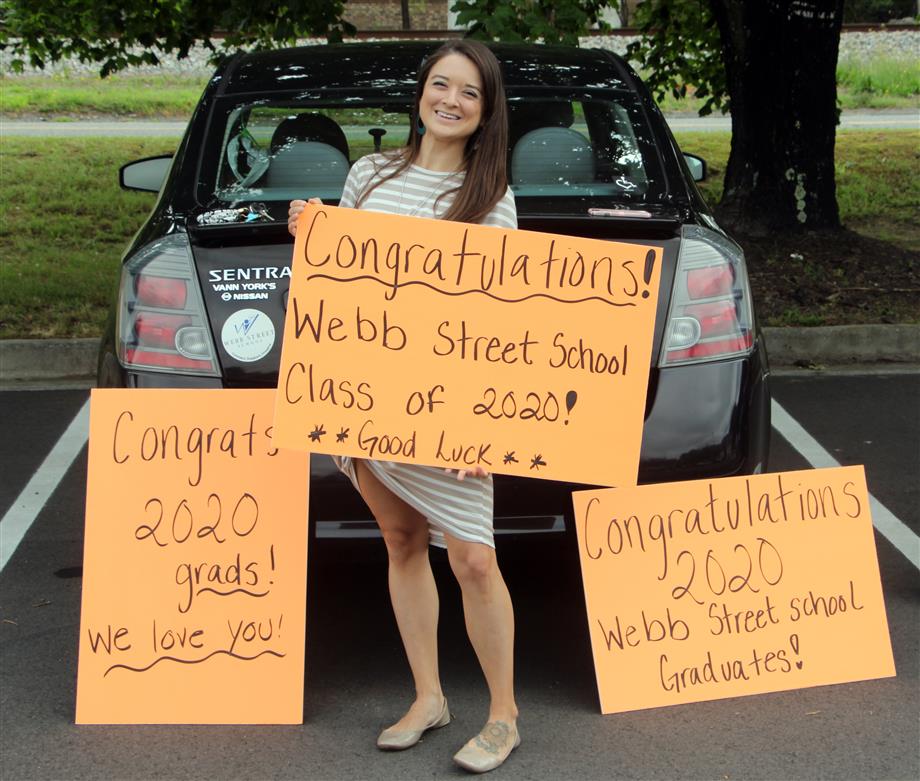 SENTRA
VANN YORK'S
NISSAN
WEBB STREET
SCHOOL
Congratulations!
Webb Street School
Class of 2020!
**Good Luck**
Congrats
2020
grads!
We love you!
Congratulations
2020
Webb Street school
Graduates!